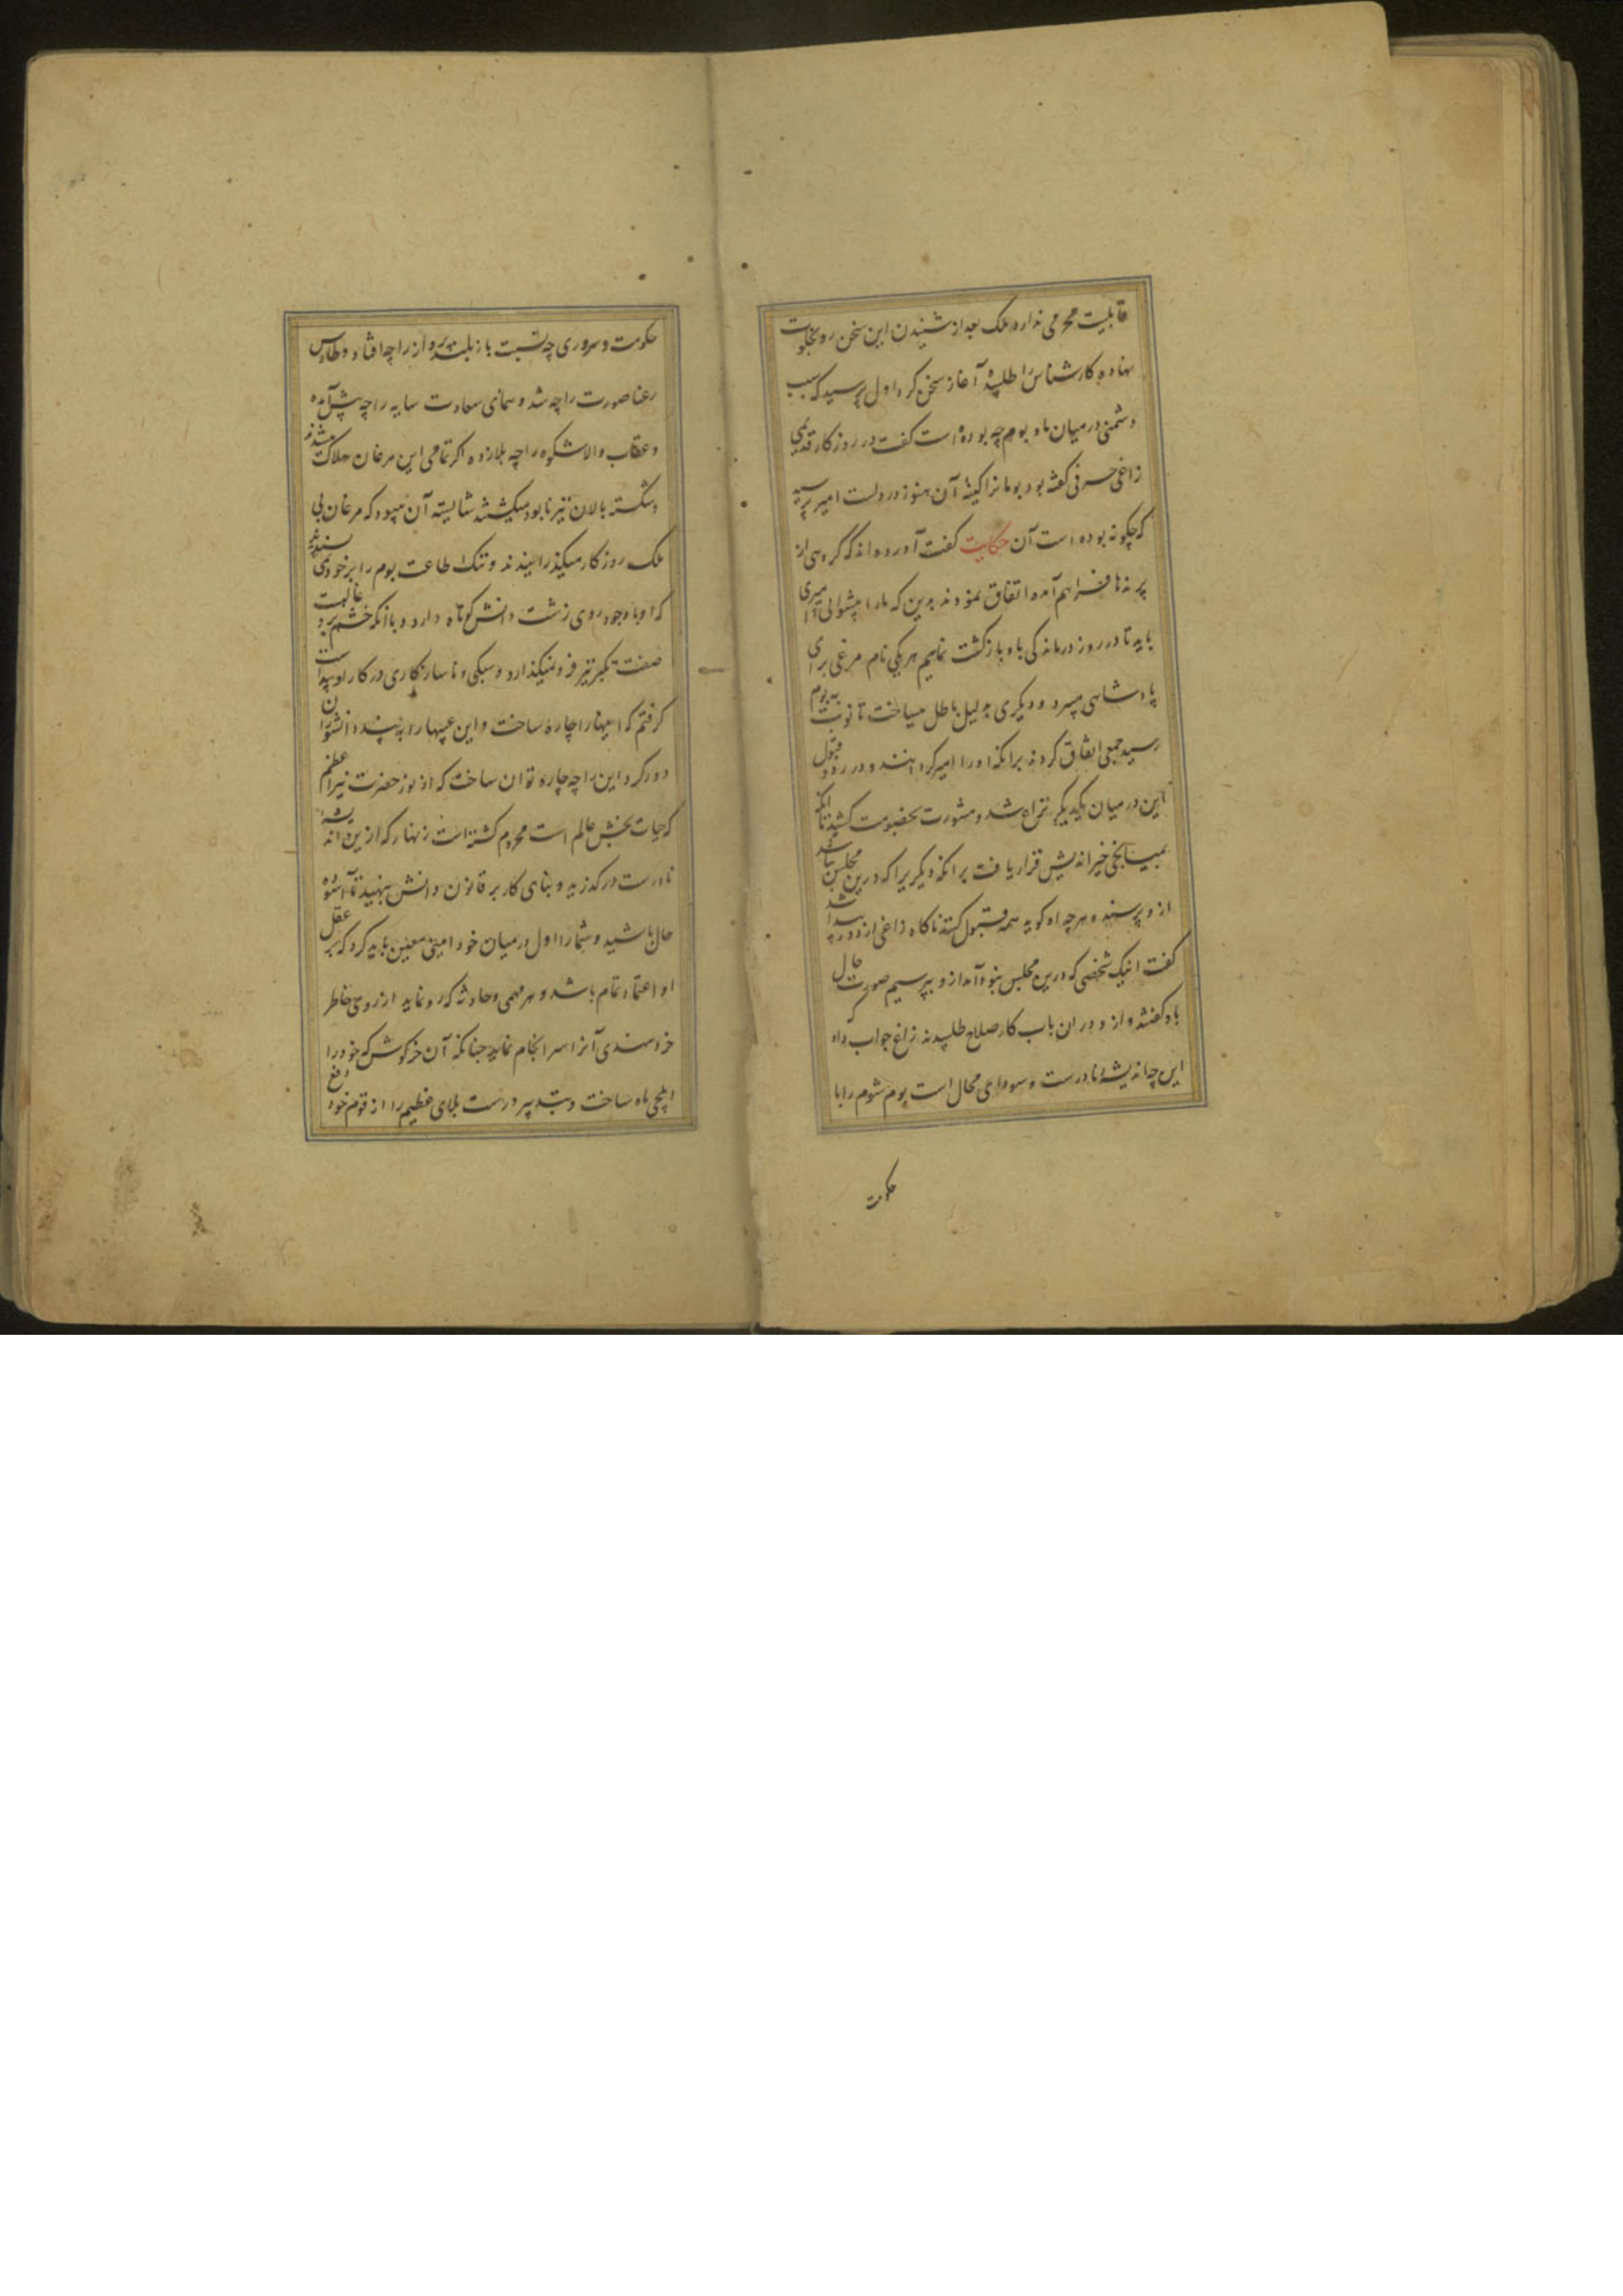 قابلیت محرمی ندارد ملک بعد از شنیدن این سخن رو بخلوت
نهاده کارشناس را طلبیده آغاز سخن کرد اول پرسید که سبب
دشمنی در میان ما و بوم چه بوده است گفت در روزکار قدیمی
زاغی حرفی گفته بود بومانرا کینهٔ آن هنوز در دلست امیر پرسید
که چگونه بوده است آن حکایت گفت آورده اند که گروهی از
پرندها فراهم آمده اتفاق نمودند بدین که ما را پیشوائی و امیری
باید تا در روز درماندکی باو بازگشت نمائیم هر یکی نام مرغی برای
پادشاهی میبرد و دیکری بدلیل باطل میساخت تا نوبت به بوم
رسید جمعی اتفاق کردند برانکه او را امیر کردانند و در رد و قبول
این در میان یکدیکر نزاع شد و مشورت بخصومت کشید تا انکه
بمیانجی خیراندیش قرار یافت برانکه دیکریرا که درین مجلس نباشد
ازو پرسند و هر چه او گوید همه قبول کنند ناکاه زاغی از دور پیدا شد
گفت اینک شخصی که درین مجلس نبود آمد ازو بپرسیم صورت حال
باو گفتند و ازو در ان باب کار صلاح طلبیدند زاغ جواب داد
این چه اندیشهٔ نادرست و سودای محال است بوم شوم را با
حکومت
حکومت و سروری چه نسبت باز بلند پرواز را چه افتاد و طاوس
رعنا صورت را چه شد و همای سعادت سایه را چه پیش آمده
و عقاب والا شکوه را چه بلا زده اکر تمامی این مرغان هلاک شدند
و شکسته بالان نیز نابود میکشتند شایستهٔ آن میبود که مرغان بی
ملک روزکار میکذرانیدند و ننک اطاعت بوم را بر خود نمی پسندیدند
که او با وجود روی زشت دانش کوتاه دارد و با آنکه خشم برو غالبست
صفت تکبر نیز فرو نمیگذارد و سبکی و ناسازکاری در کار او پیداست
گرفتم که اینها را چاره ساخت و این عیبها را به پند دانشوران
دور کرد این را چه چاره توان ساخت که از نور حضرت نیر اعظم
که حیات بخش عالم است محروم کشته است زنهار که ازین اندیشهٔ
نادرست درگذرید و بنای کار بر قانون دانش بنهید تا آسوده
حال باشید و شما را اول در میان خود امینی معین باید کرد که بر عقل
او اعتماد تمام باشد و هر مهمی و حادثه که رو نماید از روی خاطر
خردمندی آنرا سرانجام نماید چنانکه آن خرکوش که خود را
ایلچی ماه ساخت و بتدبیر درست بلای عظیم را از قوم خود دفع